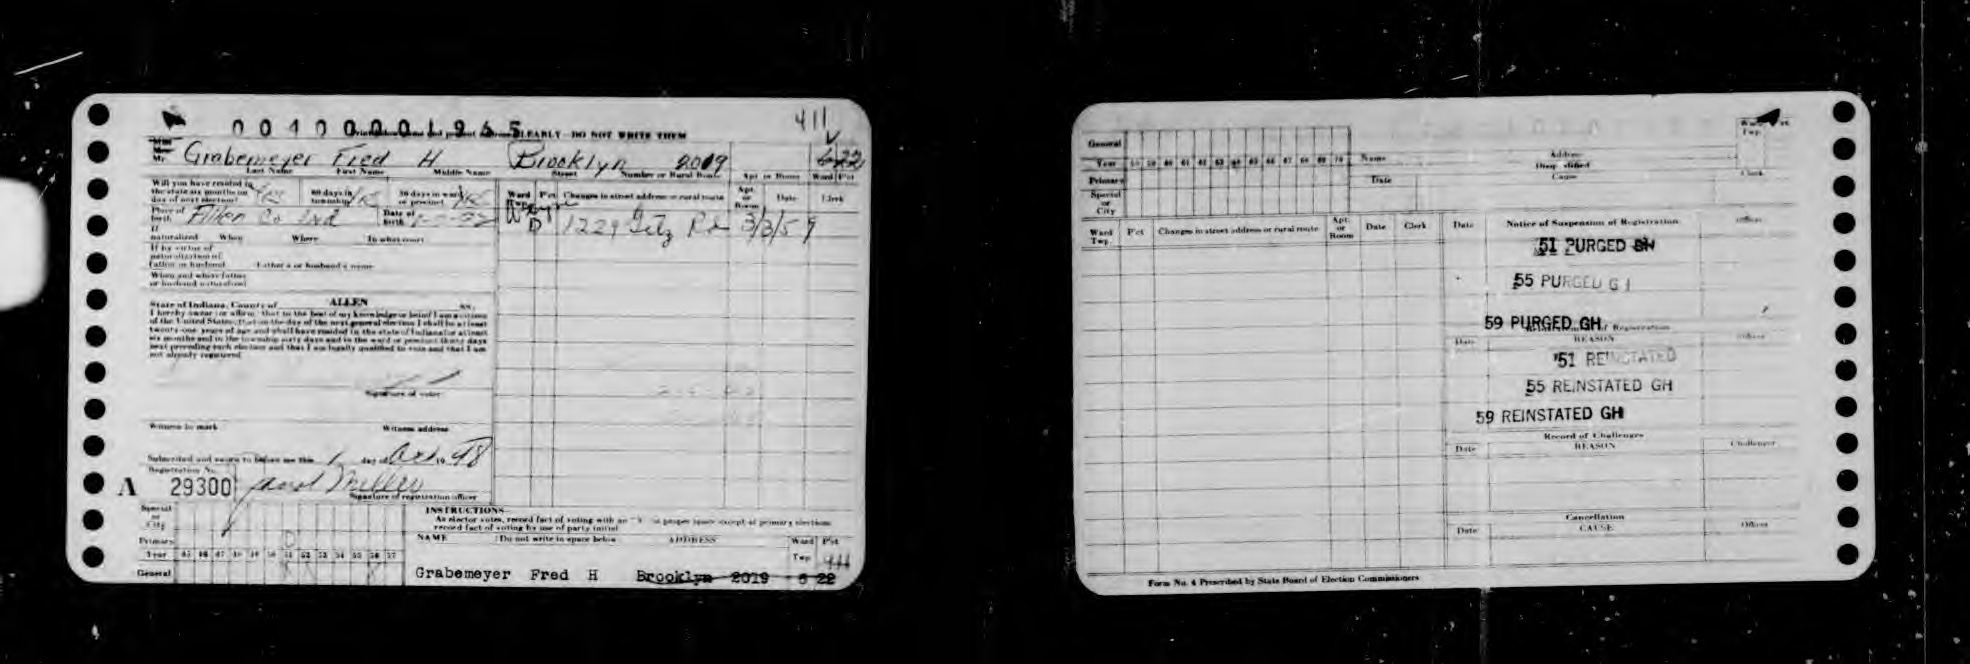 411
00400001965
CLEARLY - DO NOT WRITE THEM
Grabemeyer Fred H Brooklyn 2019 6 22
Last Name First Name Middle Name Street Number or Rural Route Apt. or Room Ward Pct
Will you have resided in the state six months on day of next election? 60 days in township? 30 days in ward or precinct?
Ward Twp. Pct Changes in street address or rural route Apt. or Room Date Clerk
Place of birth Allen Co Ind Date of birth
Wayne D 1229 Getz Rd 3/3/59
If naturalized When Where In what court
If by virtue of naturalization of father or husband Father's or husband's name
When and where father or husband naturalized
State of Indiana, County of ALLEN ss.
I hereby swear (or affirm) that to the best of my knowledge or belief I am a citizen
of the United States, that on the day of the next general election I shall be at least
twenty-one years of age and shall have resided in the state of Indiana for at least
six months and in the township sixty days and in the ward or precinct thirty days
next preceding such election and that I am legally qualified to vote and that I am
not already registered
Signature of voter
Witness to mark Witness address
Subscribed and sworn to before me this 1 day of Oct 19 48
Registration No.
A 29300 Janet Miller
Signature of registration officer
INSTRUCTIONS
As elector votes, record fact of voting with an "X" in proper space except at primary elections
record fact of voting by use of party initial
Special or City
Primary D
Year 45 46 47 48 49 50 51 52 53 54 55 56 57
General
NAME (Do not write in space below) ADDRESS Ward Twp. Pct
Grabemeyer Fred H Brooklyn 2019 6 22
General
Year 59 60 61 62 63 64 65 66 67 68 69 70
Primary
Special or City
Name Address
Disqualified
Date Cause Clerk
Ward Twp. Pct
Ward Twp. Pct Changes in street address or rural route Apt. or Room Date Clerk
Date Notice of Suspension of Registration Officer
51 PURGED GH
55 PURGED GH
59 PURGED GH of Registration
Date REASON Officer
'51 REINSTATED
55 REINSTATED GH
59 REINSTATED GH
Record of Challenges
Date REASON Challenger
Cancellation
Date CAUSE Officer
Form No. 4 Prescribed by State Board of Election Commissioners